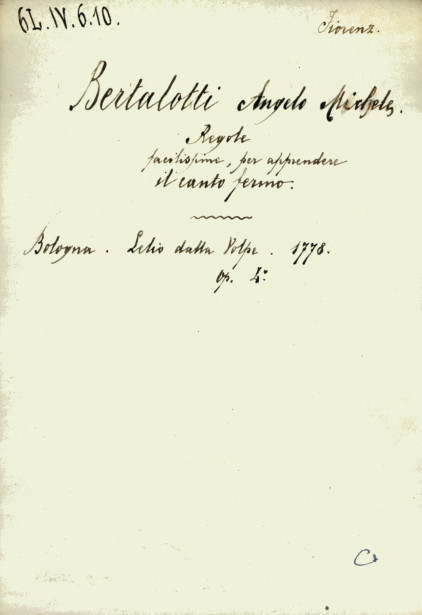 6L.IV.6.10.
Fiorenz.
Bertalotti Angelo Michele.
Regole
facilissime, per apprendere
il canto fermo.
Bologna. Lelio dalla Volpe. 1778.
op. 4°